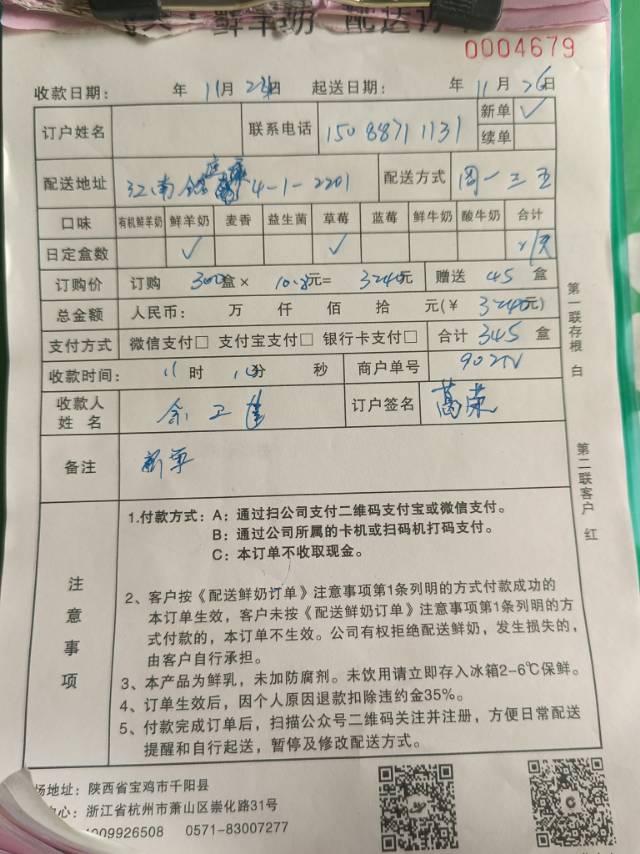 鲜羊奶 配送订
0004679
收款日期： 年 11月 23日 起送日期： 年 11月 26日
订户姓名 联系电话 15088711131 新单 ✓
续单
配送地址 江南 4-1-2201 配送方式 周一三五
口味 有机鲜羊奶 鲜羊奶 麦香 益生菌 草莓 蓝莓 鲜牛奶 酸牛奶 合计
日定盒数 ✓ ✓
订购价 订购 300盒× 10.8元= 3240元 赠送 45 盒
总金额 人民币： 万 仟 佰 拾 元(￥ 3240元)
支付方式 微信支付□ 支付宝支付□ 银行卡支付□ 合计 345 盒
收款时间： 11时 分 秒 商户单号
收款人姓名 余卫 订户签名 葛荣
备注 新单
第一联存根 白
第二联客户 红
注意事项
1.付款方式：A：通过扫公司支付二维码支付宝或微信支付。
B：通过公司所属的卡机或扫码机打码支付。
C：本订单不收取现金。
2、客户按《配送鲜奶订单》注意事项第1条列明的方式付款成功的
本订单生效，客户未按《配送鲜奶订单》注意事项第1条列明的方
式付款的，本订单不生效。公司有权拒绝配送鲜奶，发生损失的，
由客户自行承担。
3、本产品为鲜乳，未加防腐剂。未饮用请立即存入冰箱2-6℃保鲜。
4、订单生效后，因个人原因退款扣除违约金35%。
5、付款完成订单后，扫描公众号二维码关注并注册，方便日常配送
提醒和自行起送，暂停及修改配送方式。
场地址：陕西省宝鸡市千阳县
心：浙江省杭州市萧山区崇化路31号
4009926508 0571-83007277